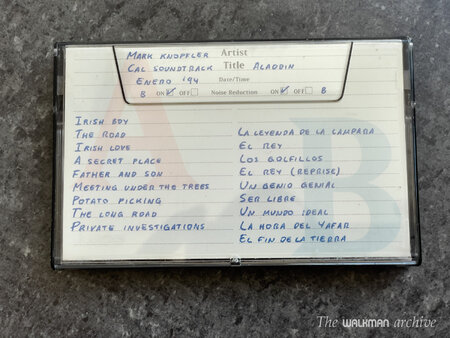 MARK KNOPFLER Artist
CAL SOUNDTRACK Title ALADDIN
ENERO '94 Date/Time
B ON OFF Noise Reduction ON OFF B
IRISH BOY
THE ROAD
IRISH LOVE
A SECRET PLACE
FATHER AND SON
MEETING UNDER THE TREES
POTATO PICKING
THE LONG ROAD
PRIVATE INVESTIGATIONS
LA LEYENDA DE LA LAMPARA
EL REY
LOS GOLFILLOS
EL REY (REPRISE)
UN GENIO GENIAL
SER LIBRE
UN MUNDO IDEAL
LA HORA DEL YAFAR
EL FIN DE LA TIERRA
A B
The WALKMAN archive